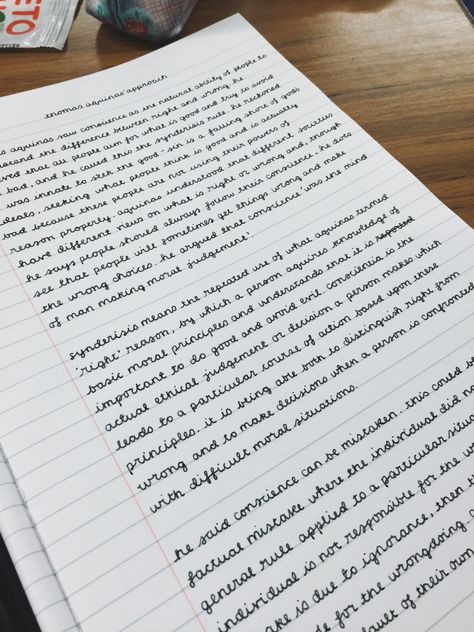 KETO
thomas aquinas' approach
s aquinas saw conscience as the natural ability of people to
stand the difference between right and wrong. he
ved that all people aim for what is good and try to avoid
bad, and he called this the synderisis rule. he reckoned
was innate to seek the good. sin is a falling short of gods
ideals, seeking what people think is good and is actually
bad because these people are not using their powers of
reason properly. aquinas understood that different societies
have different views on what is right or wrong and, though
he says people should always follow their conscience, he does
see that people will sometimes get things wrong and make
the wrong choices. he argued that conscience 'was the mind
of man making moral judgement'.
synderisis means the repeated use of what aquinas termed
'right' reason, by which a person aquires knowledge of
basic moral principles and understands that it is
important to do good and avoid evil. conscientia is the
actual ethical judgement or decision a person makes which
leads to a particular course of action based upon these
principles. it is being able both to distinguish right from
wrong and to make decisions when a person is confronted
with difficult moral situations.
he said conscience can be mistaken. this could b
factual mistake where the individual did n
general rule applied to a particular situa
individual is not responsible for the w
ake is due to ignorance, then t
de for the wrongdoing
ault of their own